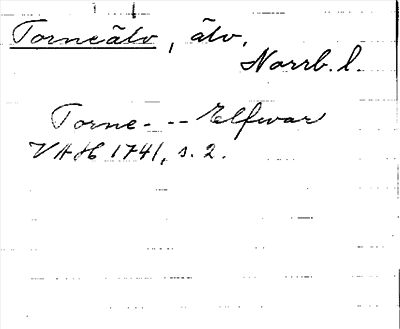 Torneälv, älv.
Norrb. l.
Torne- -- Elfwar
VAH 1741, s. 2.